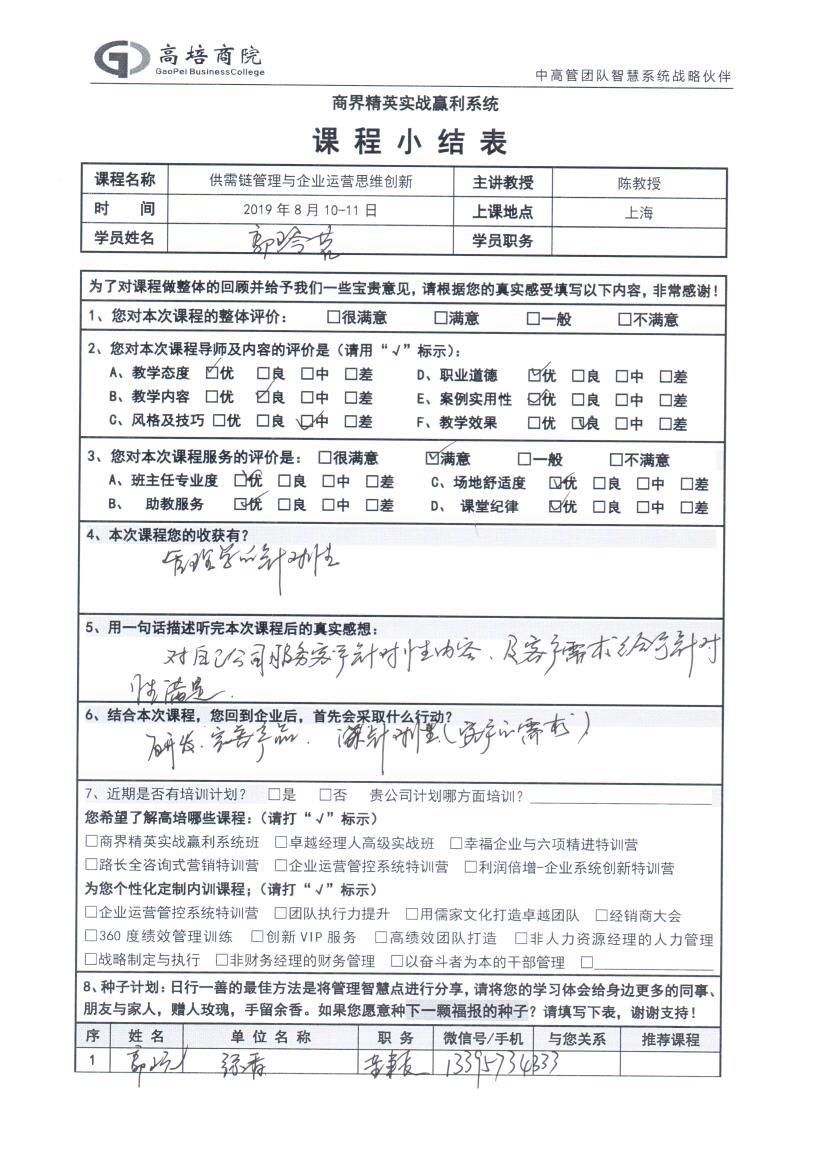 高培商院
GaoPei BusinessCollege
中高管团队智慧系统战略伙伴
商界精英实战赢利系统
课程小结表
课程名称 供需链管理与企业运营思维创新 主讲教授 陈教授
时 间 2019年8月10-11日 上课地点 上海
学员姓名 学员职务
为了对课程做整体的回顾并给予我们一些宝贵意见,请根据您的真实感受填写以下内容,非常感谢!
1、您对本次课程的整体评价: □很满意 □满意 □一般 □不满意
2、您对本次课程导师及内容的评价是(请用“√”标示):
A、教学态度 ☑优 □良 □中 □差 D、职业道德 ☑优 □良 □中 □差
B、教学内容 □优 ☑良 □中 □差 E、案例实用性 ☑优 □良 □中 □差
C、风格及技巧 □优 □良 ☑中 □差 F、教学效果 □优 ☑良 □中 □差
3、您对本次课程服务的评价是: □很满意 ☑满意 □一般 □不满意
A、班主任专业度 ☑优 □良 □中 □差 C、场地舒适度 ☑优 □良 □中 □差
B、 助教服务 ☑优 □良 □中 □差 D、 课堂纪律 ☑优 □良 □中 □差
4、本次课程您的收获有?
管理学的针对性
5、用一句话描述听完本次课程后的真实感想:
对自己公司服务客户针对性内容、及客户需求给予针对
性满足.
6、结合本次课程,您回到企业后,首先会采取什么行动?
研发、完善产品. 针对性(客户的需求)
7、近期是否有培训计划? □是 □否 贵公司计划哪方面培训?
您希望了解高培哪些课程:(请打“√”标示)
□商界精英实战赢利系统班 □卓越经理人高级实战班 □幸福企业与六项精进特训营
□路长全咨询式营销特训营 □企业运营管控系统特训营 □利润倍增-企业系统创新特训营
为您个性化定制内训课程;(请打“√”标示)
□企业运营管控系统特训营 □团队执行力提升 □用儒家文化打造卓越团队 □经销商大会
□360度绩效管理训练 □创新VIP服务 □高绩效团队打造 □非人力资源经理的人力管理
□战略制定与执行 □非财务经理的财务管理 □以奋斗者为本的干部管理 □
8、种子计划:日行一善的最佳方法是将管理智慧点进行分享,请将您的学习体会给身边更多的同事、
朋友与家人,赠人玫瑰,手留余香。如果您愿意种下一颗福报的种子?请填写下表,谢谢支持!
序 姓名 单位名称 职务 微信号/手机 与您关系 推荐课程
1 董事长 13395734333